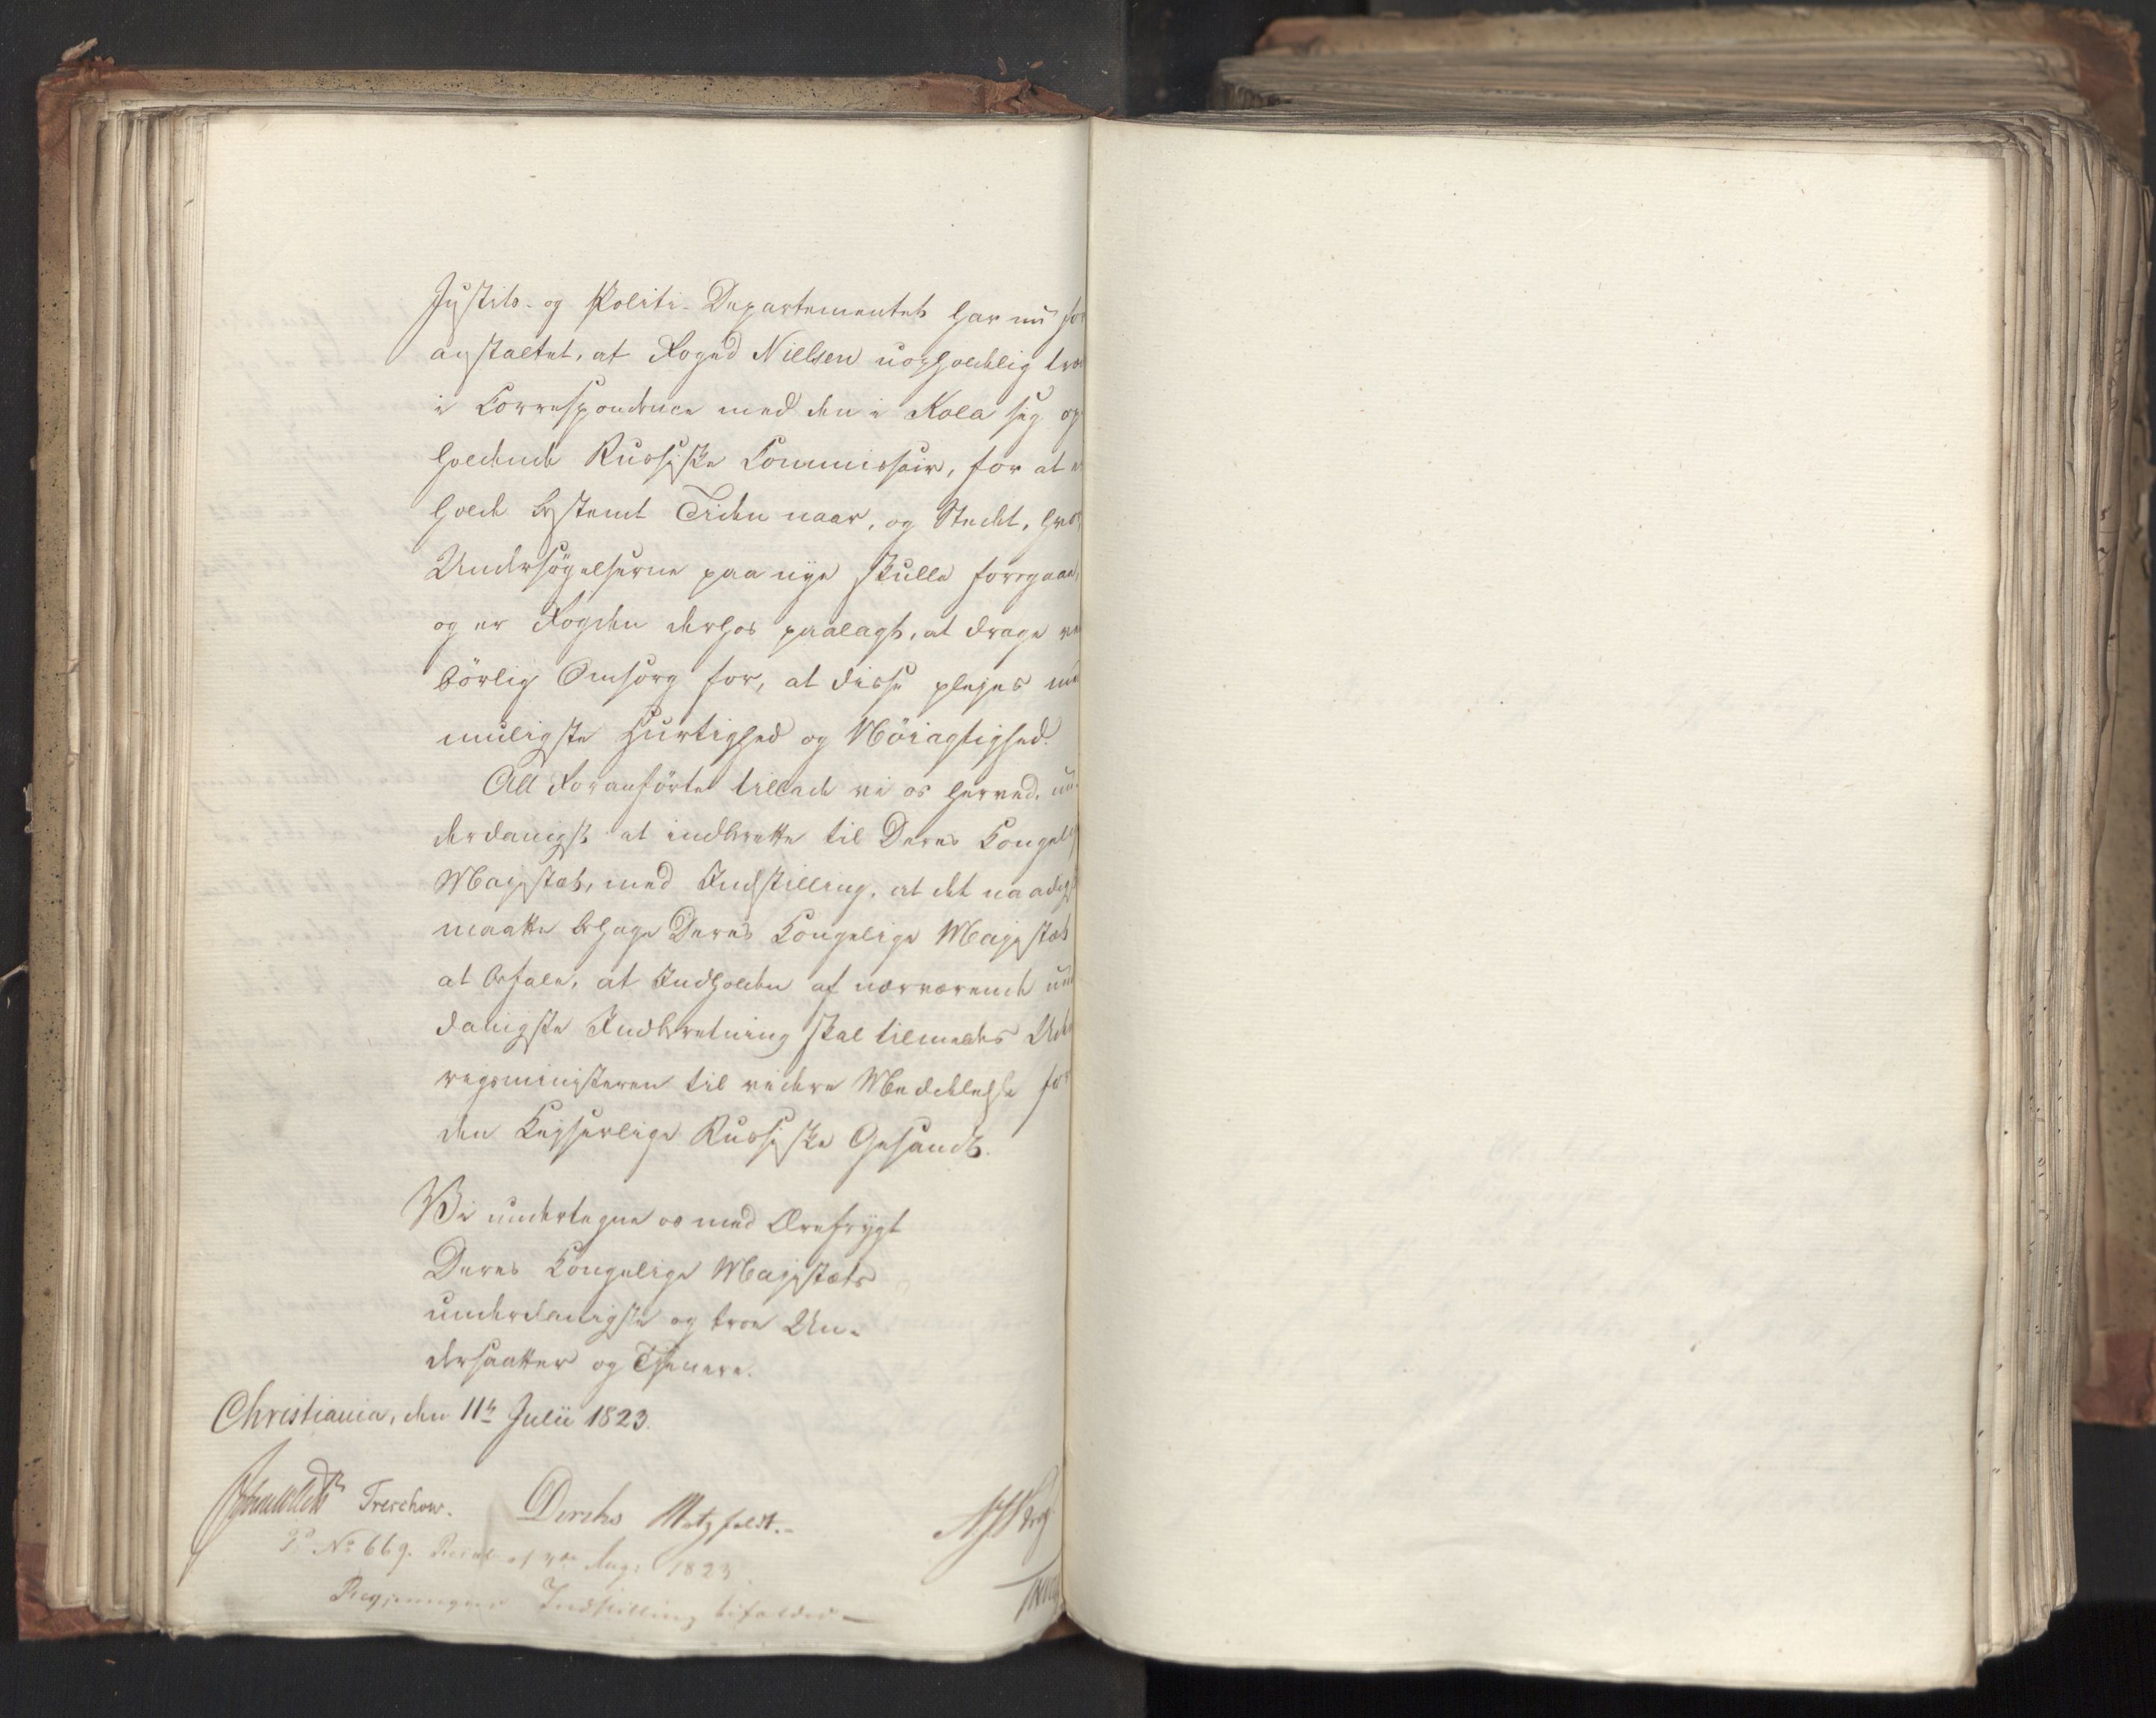 Justits- og Politi-Departementet har nu for
anstaltet, at Foged Nielsen uopholdelig træ
i Correspondence med den i Kola sig op
holdende Russiske Commissair, for at er
holde bestemt Tiden naar, og Stedet, hvor
Undersøgelserne paa nye skulle foregaae,
og er Fogden derhos paalagt, at drage ved
börlig Omsorg for, at disse plejes med
muligste Hurtighed og Nöiagtighed.
Alt Foranförte tillade vi os herved, un-
derdanigst at indberette til Deres Kongelige
Majestæt, med Indstilling, at det naadigst
maatte behage Deres Kongelige Majestæt
at befale, at Indholden af nærværende un
danigste Indberetning skal tilmeldes Uden
rigsministeren til videre Meddelelse for
den Keiserlige Russiske Gesandt.
Vi undertegne os med Ærefrygt
Deres Kongelige Majestæts
underdanigste og troe Un-
dersaatter og Tjenere.
Christiania, den 11te Julii 1823.
Treschow. Diriks Motzfeldt.
No 669. 1823
Regjeringens Indstilling bifaldes